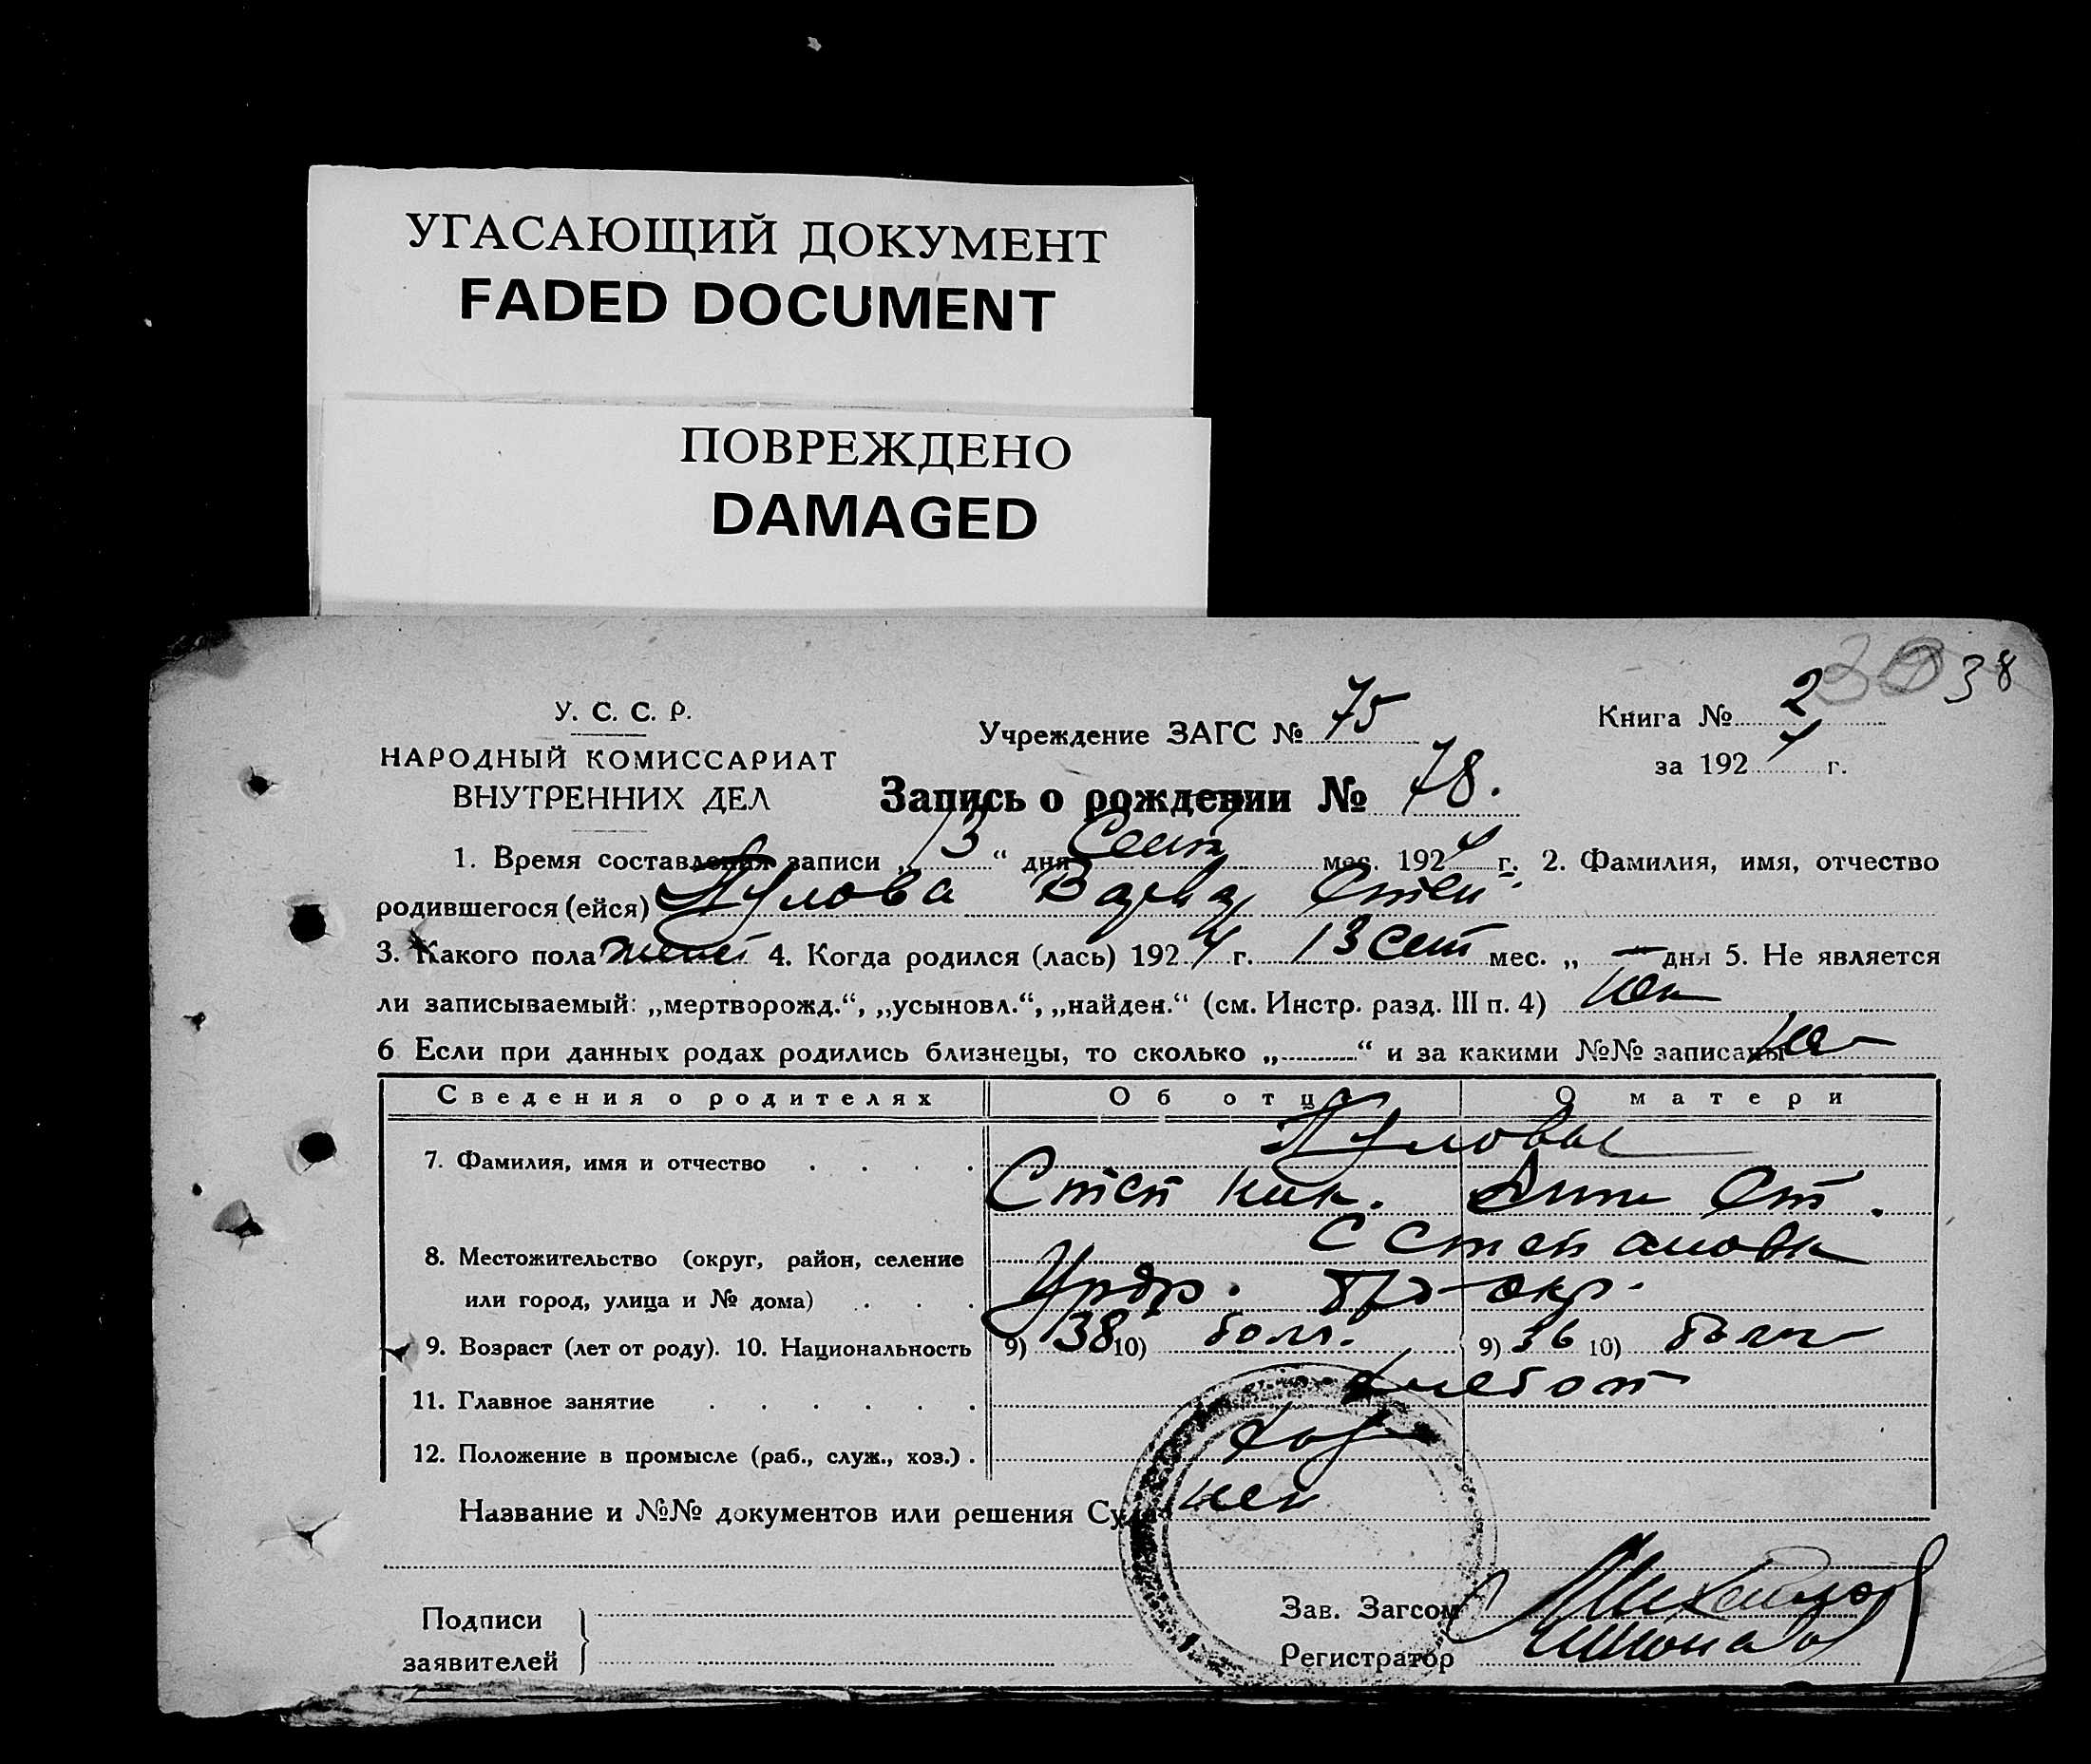 УГАСАЮЩИЙ ДОКУМЕНТ
FADED DOCUMENT
ПОВРЕЖДЕНО
DAMAGED
38
У. С. С. Р.
НАРОДНЫЙ КОМИССАРИАТ
ВНУТРЕННИХ ДЕЛ
Учреждение ЗАГС № 75
Книга № 2
за 192 г.
Запись о рождении № 78.
1. Время составления записи „13“ дня Сент мес. 192 г. 2. Фамилия, имя, отчество
родившегося (ейся) Степ
3. Какого пола 4. Когда родился (лась) 192 г. 13 сент мес. „ — дня 5. Не является
ли записываемый: „мертворожд.“, „усыновл.“, „найден.“ (см. Инстр. разд. III п. 4)
6 Если при данных родах родились близнецы, то сколько „ “ и за какими №№ записаны
Сведения о родителях Об отце О матери
7. Фамилия, имя и отчество
Степ Ник. Ст.
8. Местожительство (округ, район, селение С Степановка
или город, улица и № дома) окр.
9. Возраст (лет от роду). 10. Национальность 9) 38 10) болг. 9) 36 10) болг
11. Главное занятие хлебоп
12. Положение в промысле (раб., служ., хоз.) хоз
Название и №№ документов или решения Суда
Подписи
заявителей
Зав. Загсом
Регистратор